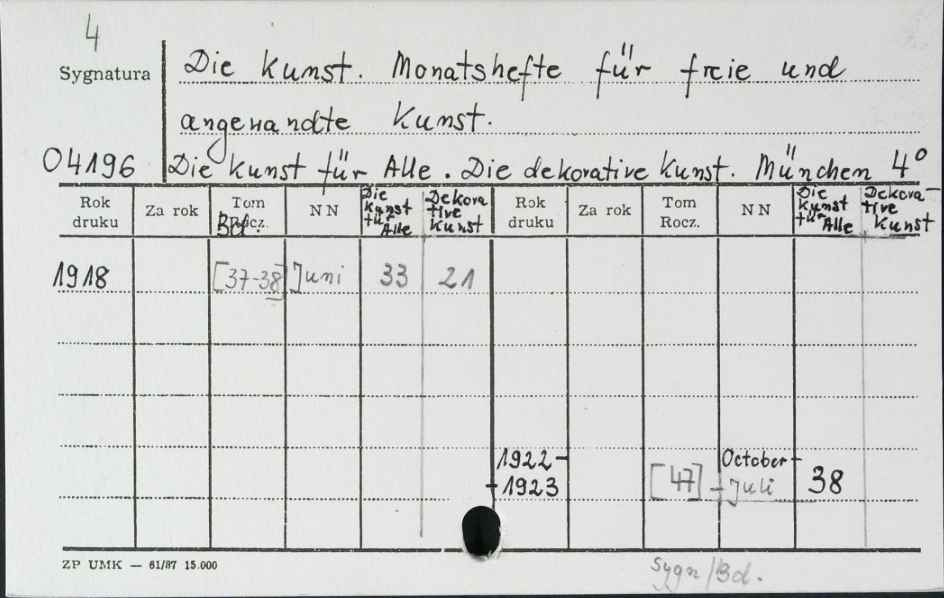 4
Sygnatura
Die Kunst. Monatshefte für freie und
angewandte Kunst.
04196 Die Kunst für Alle. Die dekorative Kunst. München 4°
Rok druku Za rok Tom Rocz. Bd. NN Die Kunst für Alle Dekorative Kunst Rok druku Za rok Tom Rocz. NN Die Kunst für Alle Dekorative Kunst
1918 [37-38] Juni 33 21
1922- October-
-1923 [47] -Juli 38
ZP UMK — 61/87 15.000
Sygn/Bd.